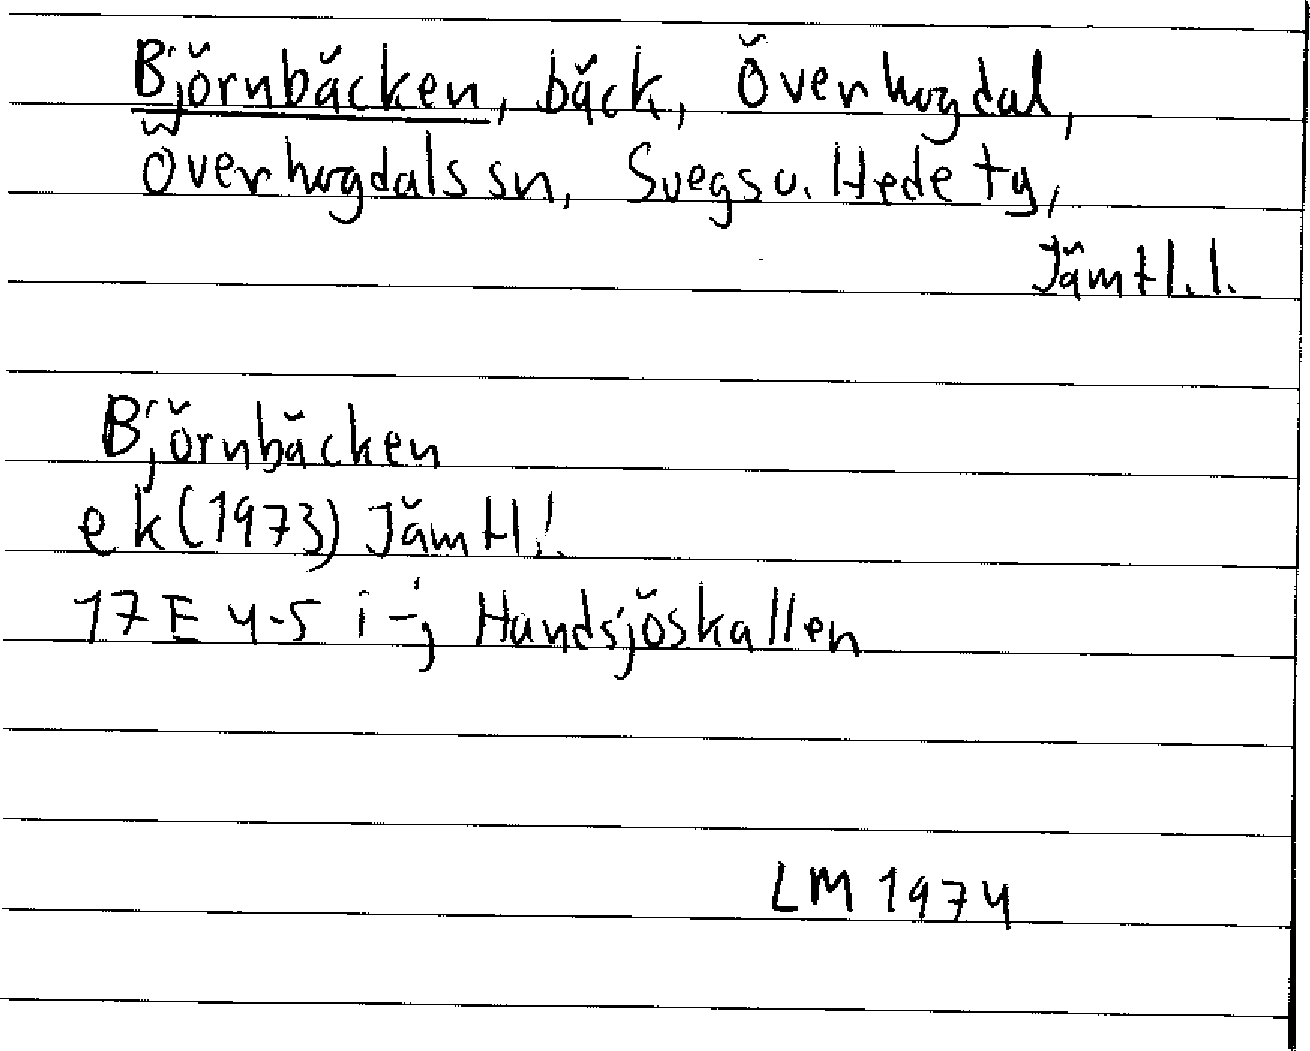 Björnbäcken, bäck, Överhogdal,
Överhogdals sn, Svegs o. Hede tg,
Jämtl. l.
Björnbäcken
ek (1973) Jämtl l.
17E 4-5 i-j Handsjöskallen
LM 1974